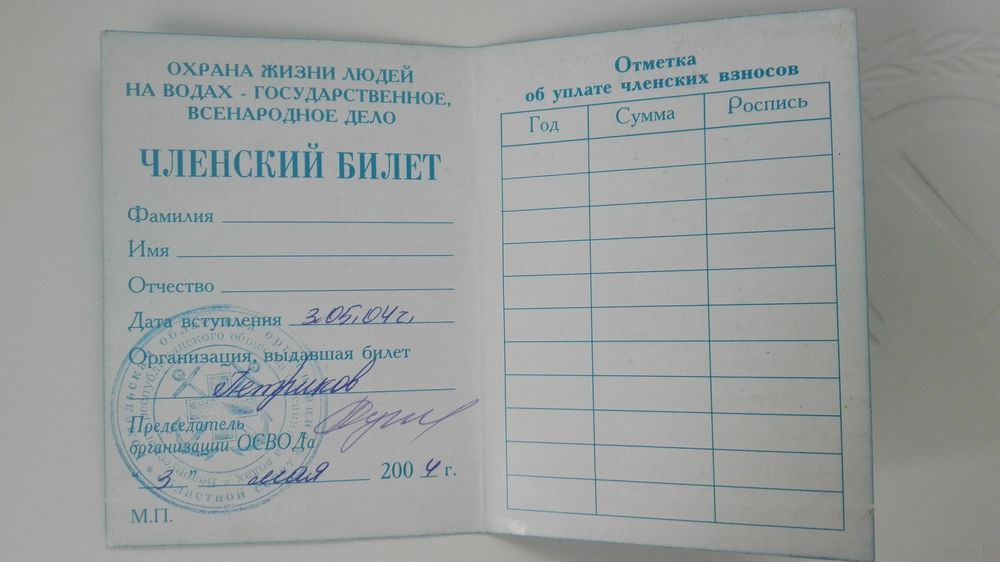 ОХРАНА ЖИЗНИ ЛЮДЕЙ
НА ВОДАХ - ГОСУДАРСТВЕННОЕ,
ВСЕНАРОДНОЕ ДЕЛО
ЧЛЕНСКИЙ БИЛЕТ
Фамилия
Имя
Отчество
Дата вступления 3.05.04г.
Организация, выдавшая билет
Петриков
Председатель
организации ОСВОДа
3 " мая 2004 г.
М.П.
Отметка
об уплате членских взносов
Год Сумма Роспись